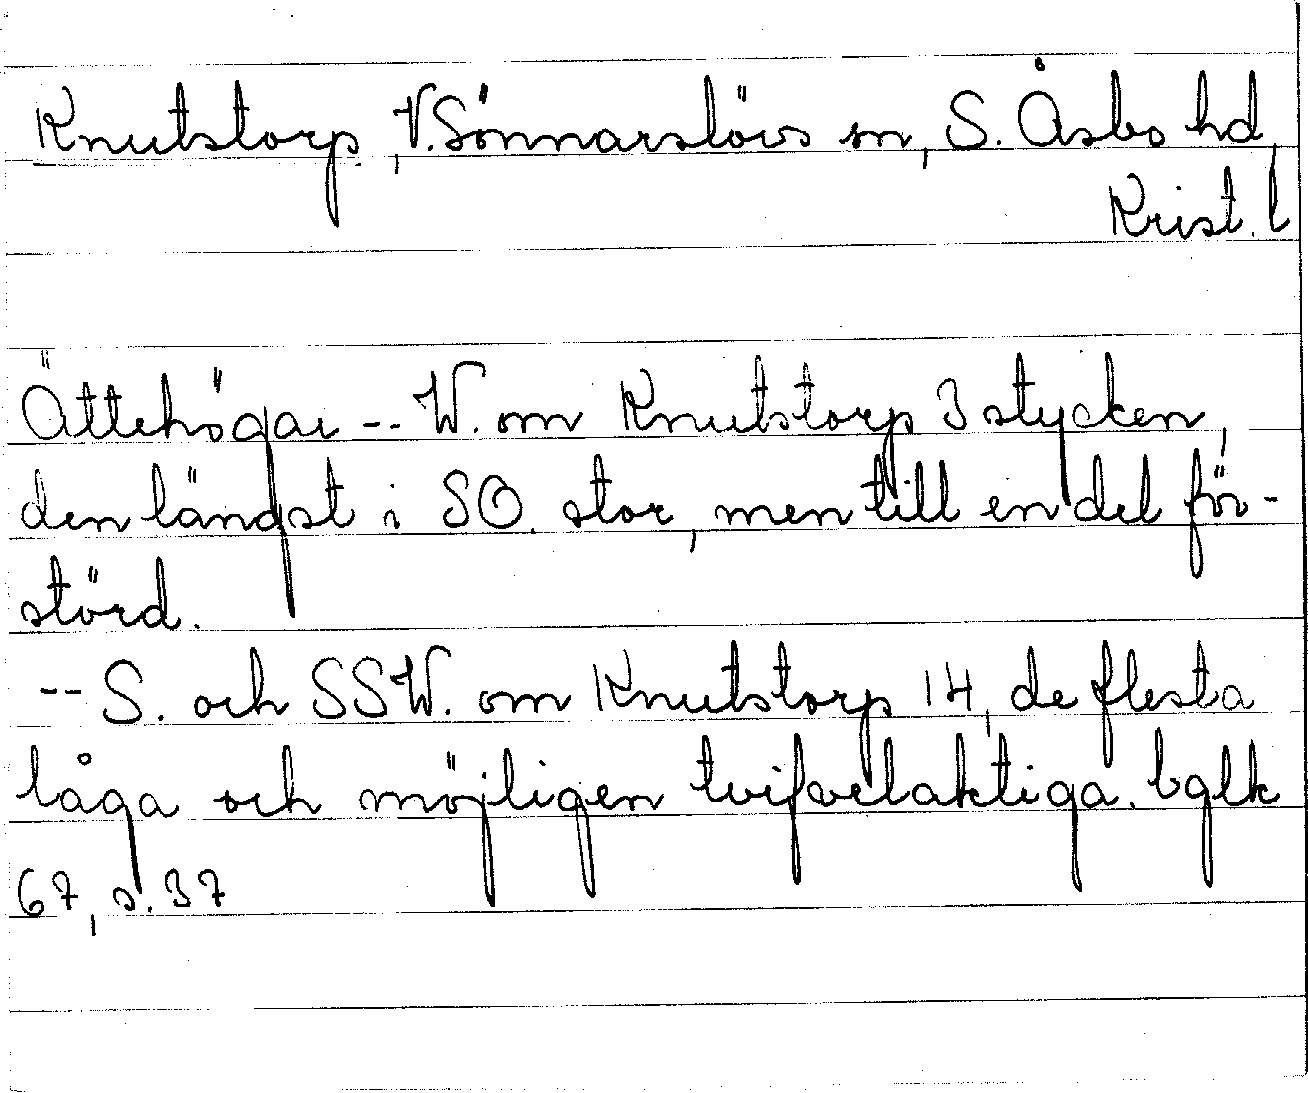 Knutstorp, V. Sönnarslövs sn, S. Åsbo hd,
Krist. l
Ättehögar -- W. om Knutstorp 3 stycken,
den längst i SO. stor, men till en del för-
störd.
-- S. och SSW. om Knutstorp 14, de flesta
låga och möjligen tvifvelaktiga. bglk
67, s. 37